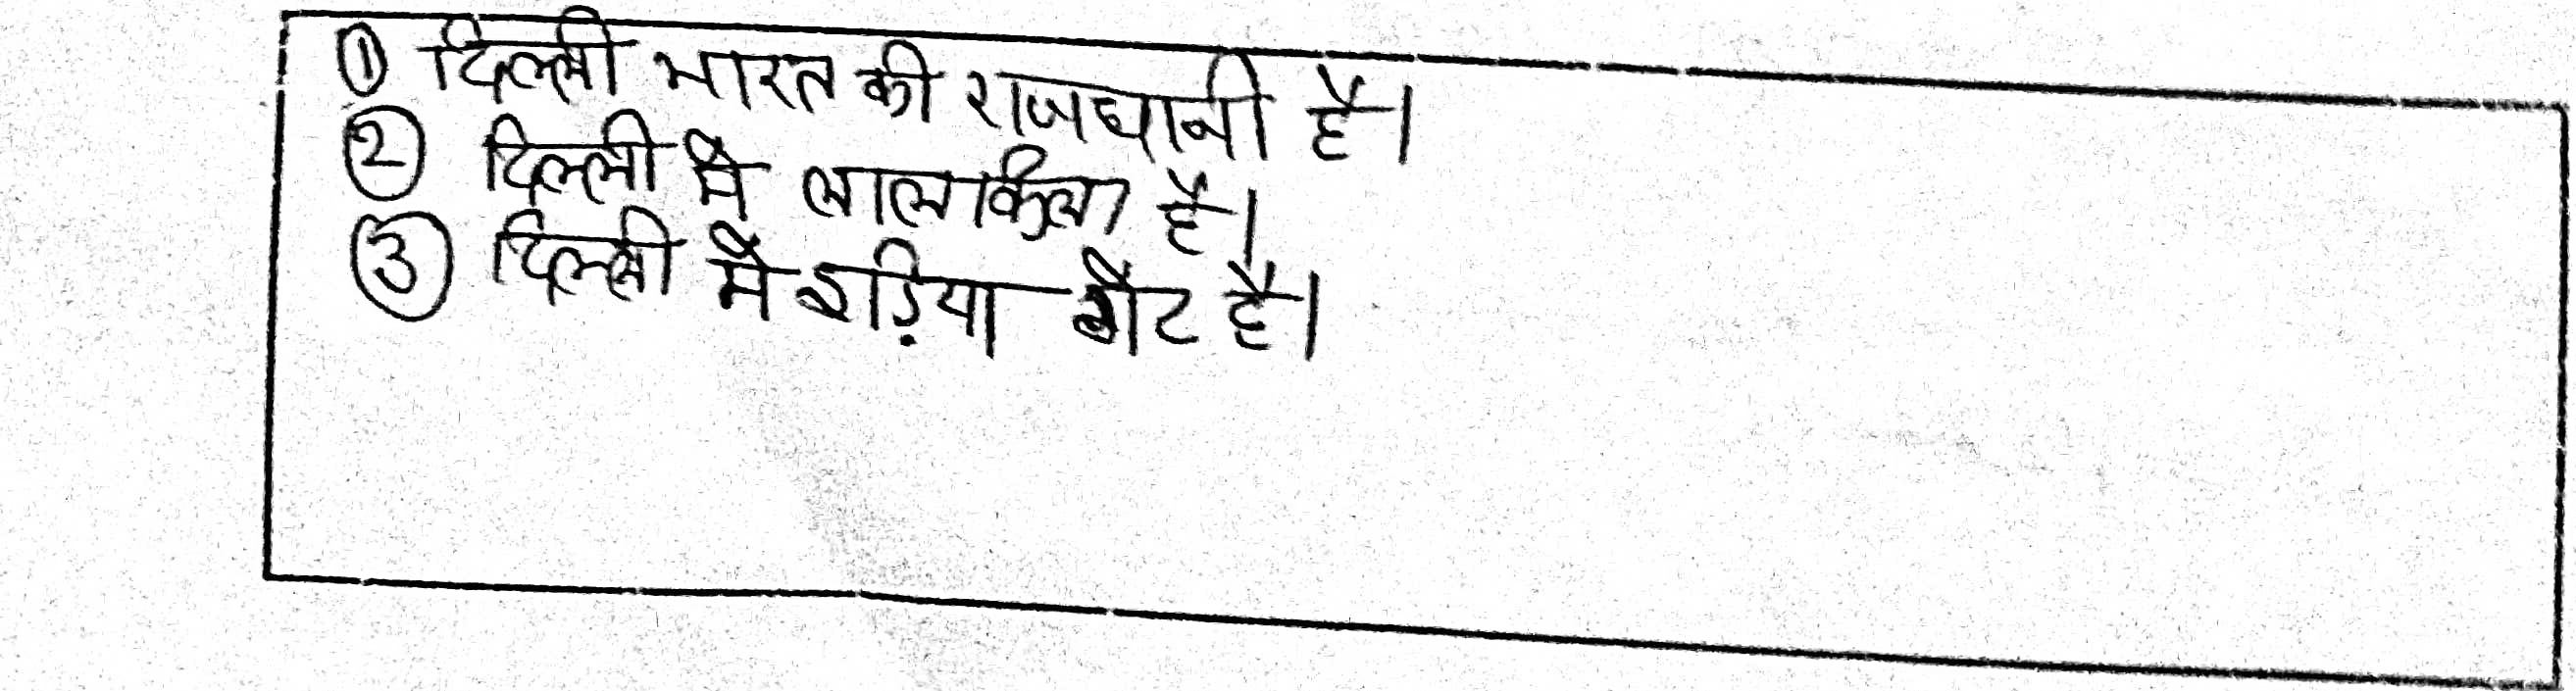 ① दिल्ली भारत की राजधानी है।
② दिल्ली मै लालकिला है।
③ दिल्ली मै इडि़या गैट है।